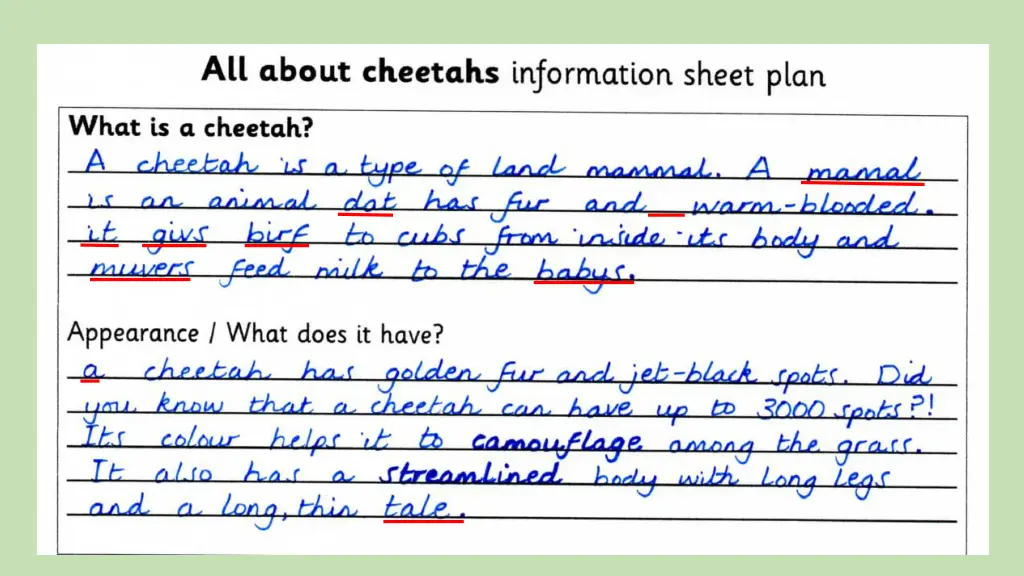 All about cheetahs information sheet plan
What is a cheetah?
A cheetah is a type of land mammal. A mamal
is an animal dat has fur and warm-blooded.
it givs birf to cubs from inside its body and
muvers feed milk to the babys.
Appearance / What does it have?
a cheetah has golden fur and jet-black spots. Did
you know that a cheetah can have up to 3000 spots?!
Its colour helps it to camouflage among the grass.
It also has a streamlined body with long legs
and a long, thin tale.